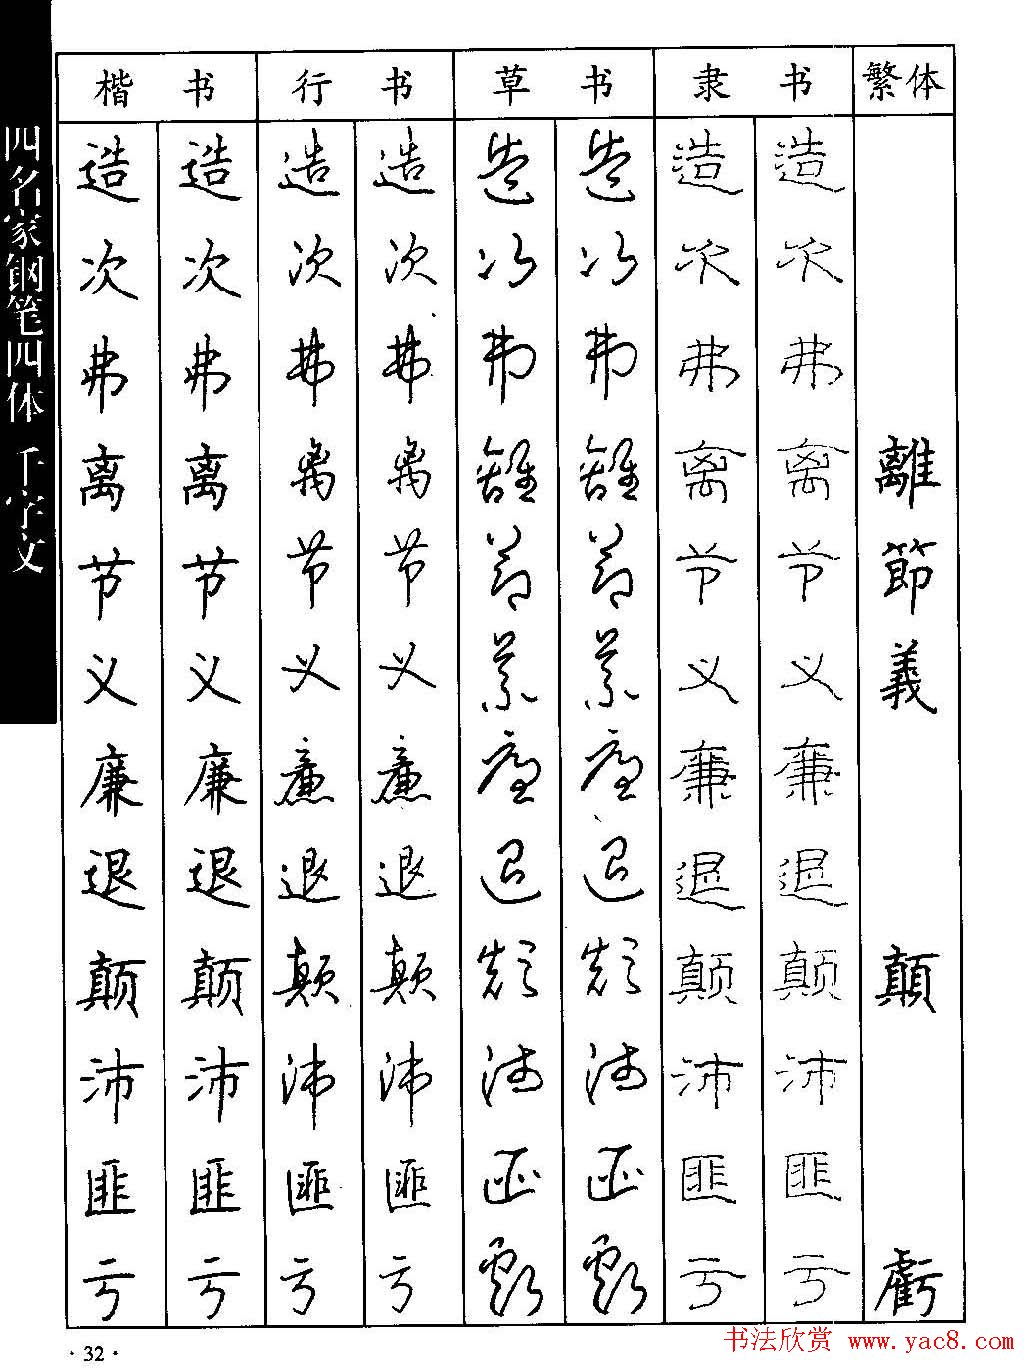 四名家钢笔四体 千字文
楷书 行书 草书 隶书 繁体
造 造 造 造 造 造 造 造
次 次 次 次 次 次 次 次
弗 弗 弗 弗 弗 弗 弗 弗
离 离 离 离 離 離 离 离 離
节 节 节 节 節 節 节 节 節
义 义 义 义 義 義 义 义 義
廉 廉 廉 廉 廉 廉 廉 廉
退 退 退 退 退 退 退 退
颠 颠 颠 颠 顛 顛 颠 颠 顛
沛 沛 沛 沛 沛 沛 沛 沛
匪 匪 匪 匪 匪 匪 匪 匪
亏 亏 亏 亏 虧 虧 亏 亏 虧
·32·
书法欣赏 www.yac8.com